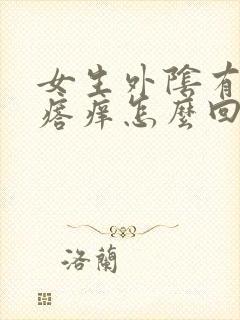 女生外陰有
瘩癢怎麼回
洛蘭